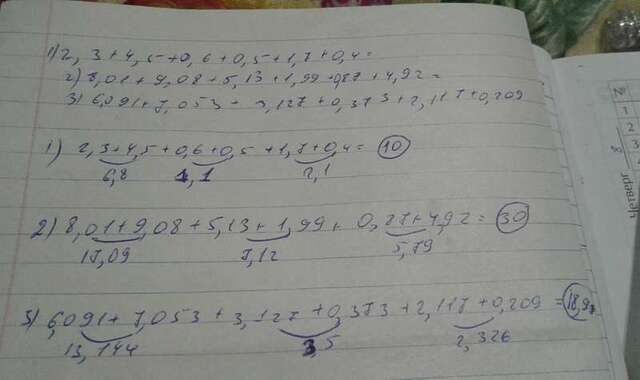 1) 2,3+4,5+0,6+0,5+1,7+0,4=
2) 8,01+9,08+5,13+1,99+0,87+4,92=
3) 6,091+7,053+3,127+0,373+2,117+0,209
1) 2,3+4,5+0,6+0,5+1,7+0,4= 10
6,8 1,1 2,1
2) 8,01+9,08+5,13+1,99+0,87+4,92= 30
17,09 7,12 5,79
3) 6,091+7,053+3,127+0,373+2,117+0,209 =
13,144 3,5 2,326
№
1
2
3
Четверг